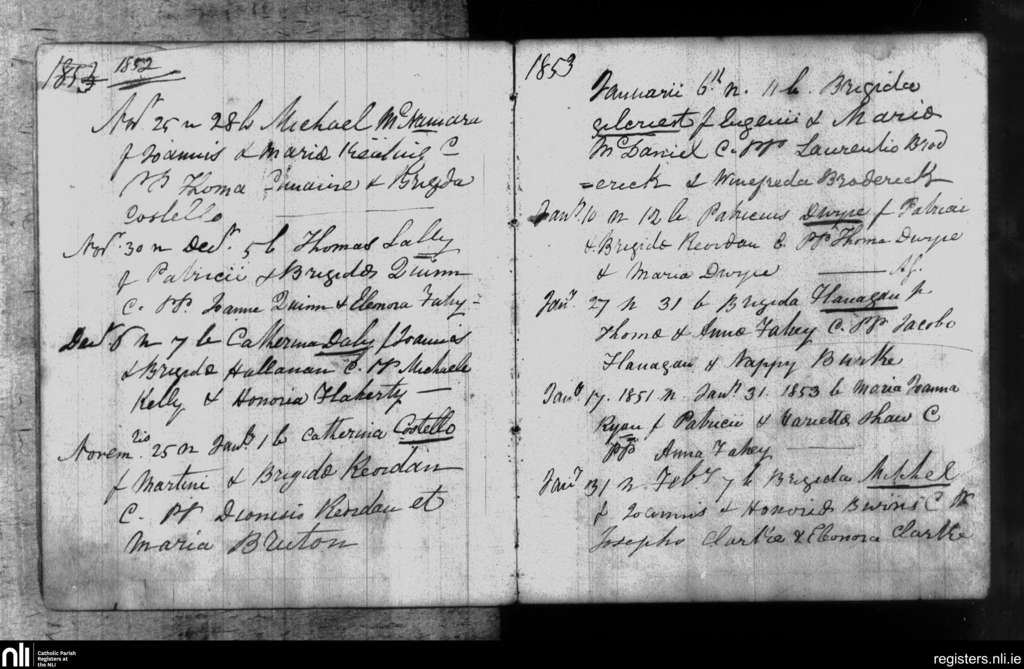 1853 1852
Novr 25 n 28 b Michael McNamara
f Joannis & Mariæ Keating C
PP Thoma & Brigida
Costello
Novr. 30 n Decr. 5 b Thomas Lally
f Patricii & Brigidæ Quinn
C. PP. Joanne Quinn & Elenora Fahy
Decr 6 n 7 b Catherina Daly f Joannis
& Brigidæ Hallanan C. PP Michaele
Kelly & Honoria Flaherty —
Novem. 25 n Janr. 1 b Catherina Costello
f Martini & Brigidæ Reordan
C. PP Dionisio Reordan et
Maria Bruton
1853
Januarii 6th n. 11 b. Brigida
Gilcriest f Eugenii & Mariæ
McDaniel C. PP Laurentio Brod
=erick & Winefreda Broderick
Janr. 10 n 12 b Patricius Dwyre f Patricii
& Brigidæ Reordan C PP. Thoma Dwyre
& Maria Dwyre —
Janr. 27 n 31 b Brigida Flanagan f
Thomæ & Annæ Fahey C. PP Jacobo
Flanagan & Nappy Burke
Janr. 17. 1851 n. Janr. 31. 1853 b Maria Joanna
Ryan f Patricii & Harietta Shaw C
PP Anna Fahey —
Janr. 31 n Febr. 7 b Brigida Mitchel
f Joannis & Honoriæ C PP
Josepho Clarke & Elenora Clarke
nli Catholic Parish
Registers at
the NLI
registers.nli.ie